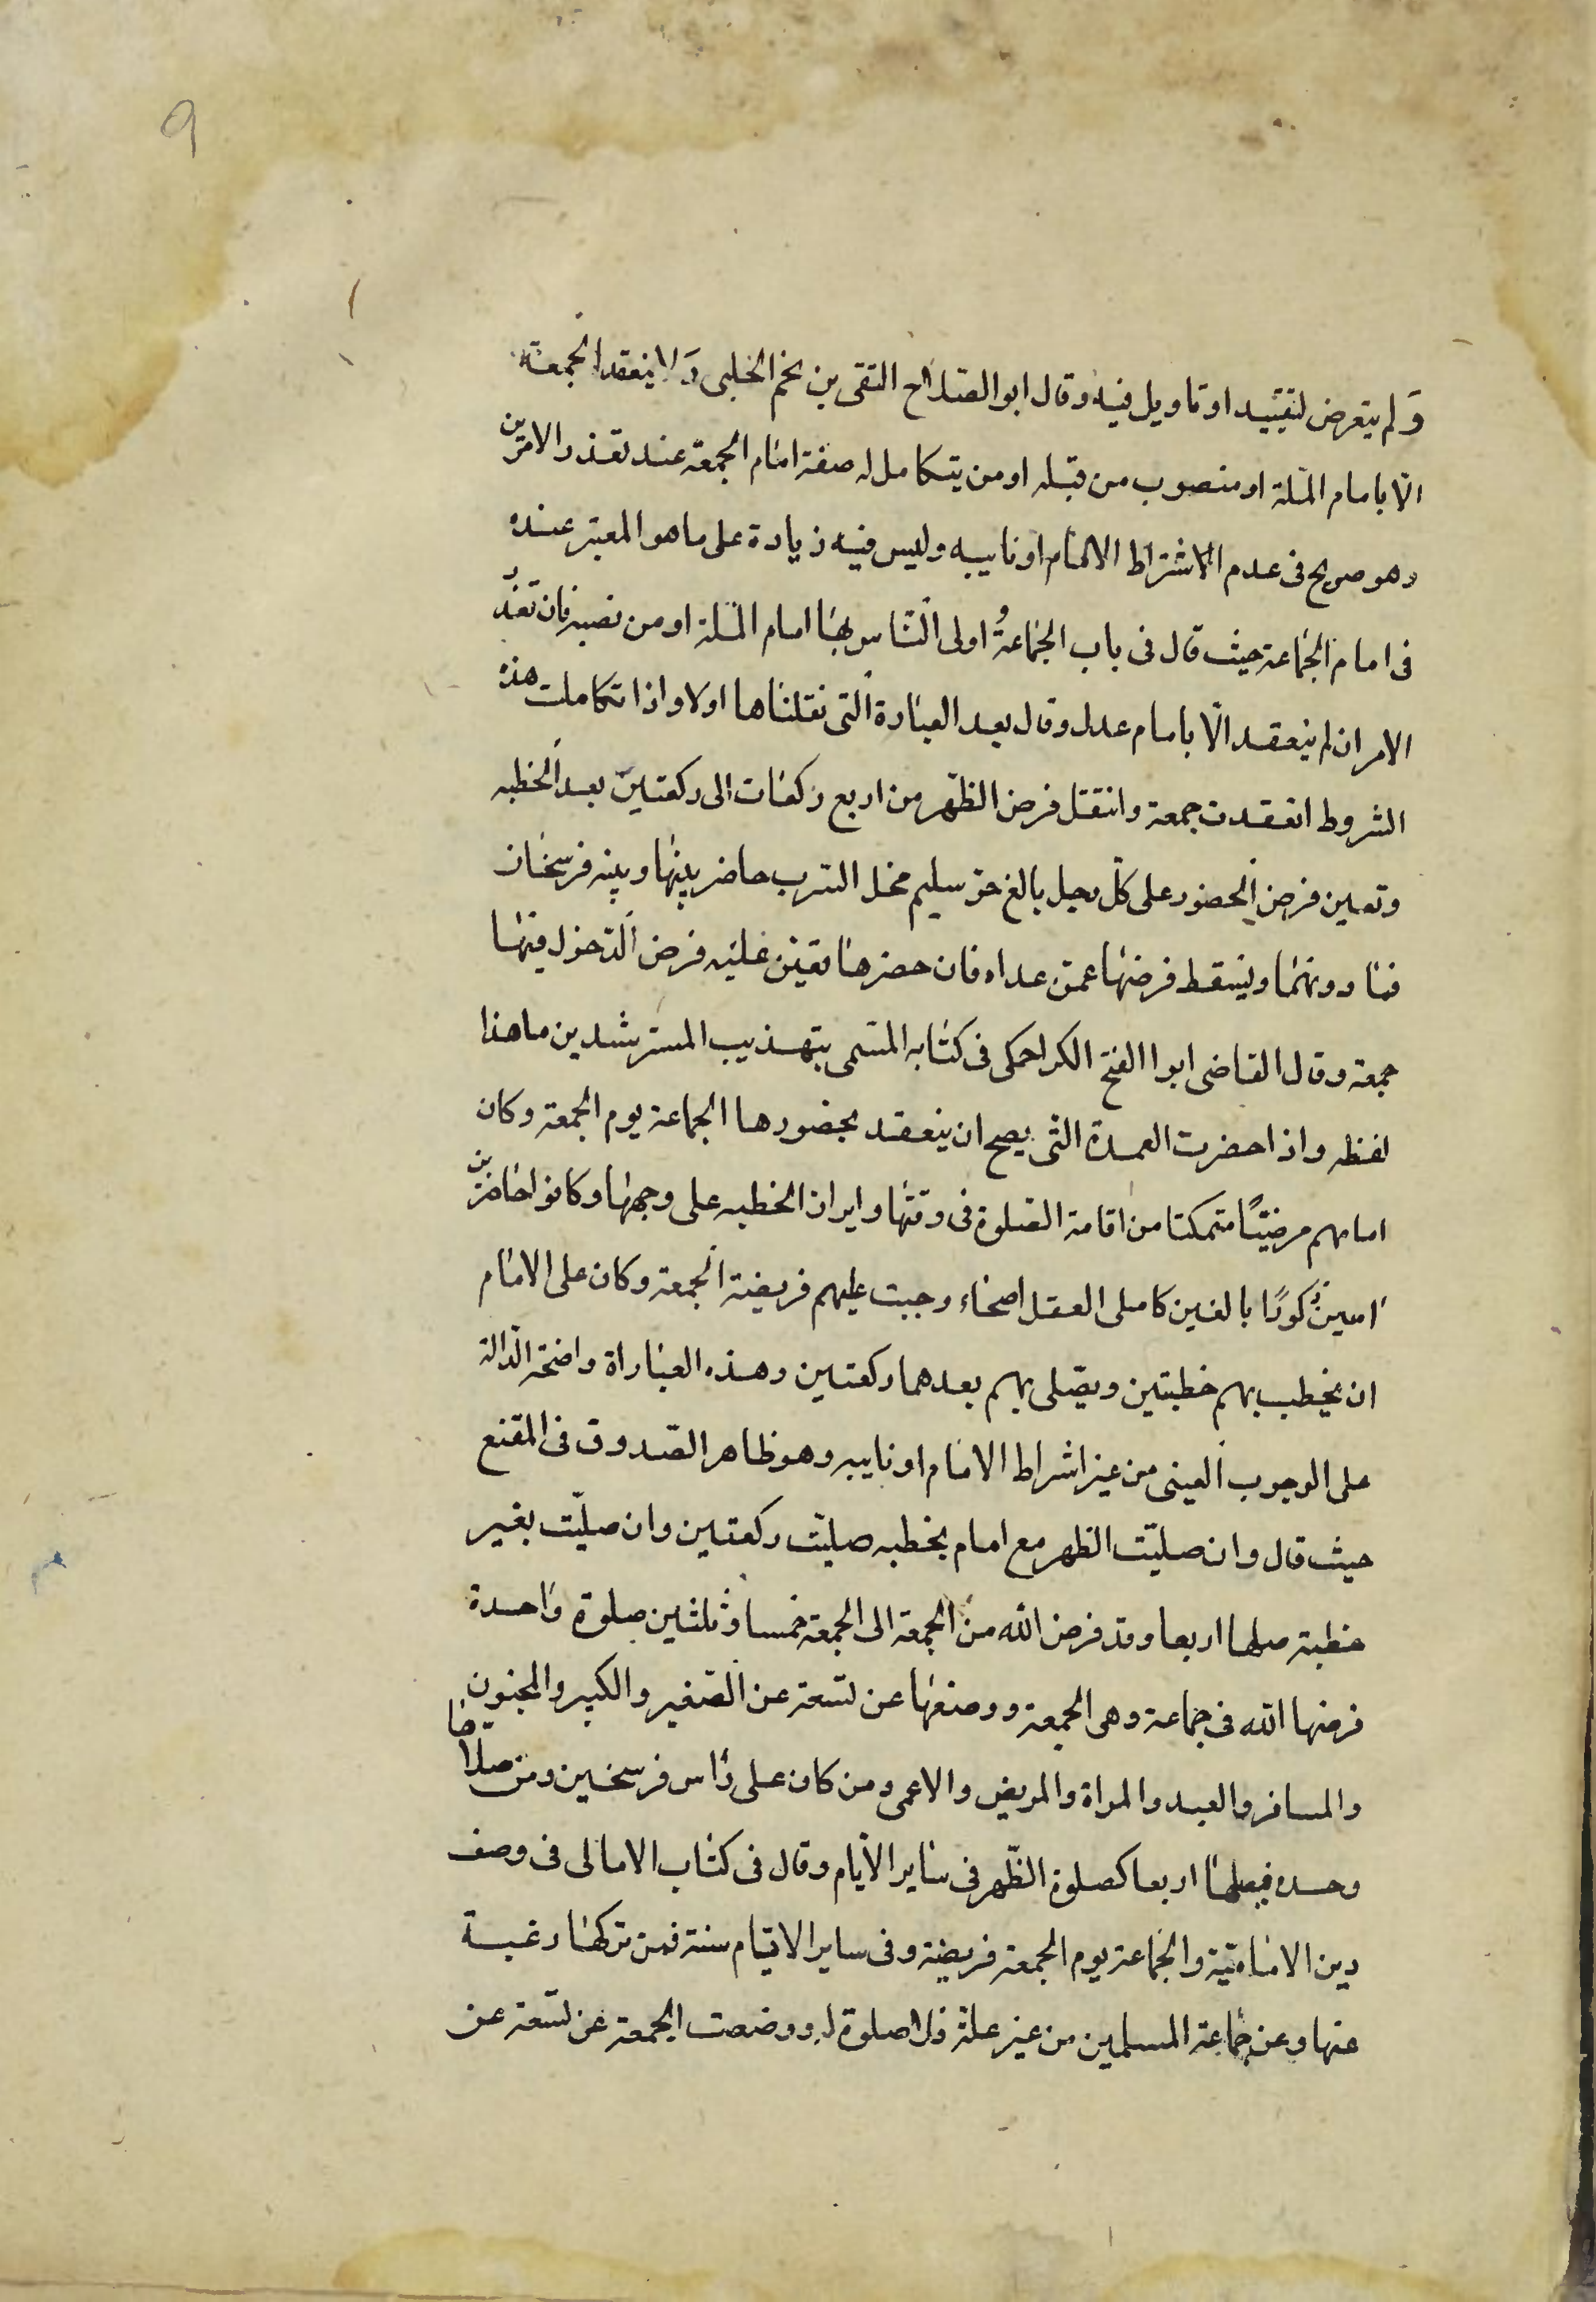 9
وَلم يتعرض لتقييد او تاويل فيه وقال ابو الصّلاح التقى بن نجم الحلبى وَلا ينعقد الجمعة
الّا بامام الملّة او منصوب من قبله او من يتكامل له صفة امام الجمعة عند تعذر الامرين
وهو صريح فى عدم الاشتراط الامام او نايبه وليس فيه زيادة على ما هو المعتبر عنده
فى امام الجماعة حيث قال فى باب الجماعةُ واولى النّاس بها امام الملّة او من نصبه فان تعذّر
الامران لم ينعقد الّا بامام عدل وقال بعد العبارة التى نقلناها اولا واذا تكاملت هذه
الشروط انعقدت جمعة وانتقل فرض الظّهر من اربع ركعات الى ركعتين بعد الخطبه
وتعين فرض الحضور على كلّ رجل بالغ حرّ سليم مخل السّرب حاضر بينها وبينه فرسخان
فما دونهما ويسقط فرضها عمّن عداه فان حضرها تعيّن عليه فرض الدّخول فيها
جمعة وقال القاضى ابوا الفتح الكراجكى فى كتابه المسّمى بتهذيب المسترشدين ما هذا
لفظه واذا حضرت العدة التى يصح ان ينعقد بحضورها الجماعة يوم الجمعة وكان
امامهم مرضيًّا متمكنا من اقامة الصّلوة فى وقتها وايراد الخطبه على وجهها وكانوا حاضرين
امنين ذكورًا بالغين كاملى العقل اصحاء وجبت عليهم فريضة الجمعة وكان على الامام
ان يخطب بهم خطبتين ويصّلى بهم بعدهما ركعتين وهذه العباراة واضحة الدّالة
على الوجوب العينى من غير اشراط الامام او نايبه وهو ظاهر الصّدوق فى المقنع
حيث قال وان صليّت الظهر مع امام بخطبه صليّت ركعتين وان صليّت بغير
خطبة صلها اربعا وقد فرض الله من الجمعة الى الجمعة خمسا وثلثين صلوة واحدة
فرضها الله فى جماعة وهى الجمعة ووضعها عن تسعة عن الصّغير والكبير والمجنون
والمسافر والعبد والمراة والمريض والاعمى ومن كان على رأس فرسخين ومن صلاها
وحده فيصلها اربعا كصلوة الظّهر فى ساير الايّام وقال فى كتاب الامالى فى وصف
دين الاماميّة والجماعة يوم الجمعة فريضة وفى ساير الايّام سنة فمن تركها رغبة
عنها وعن جماعة المسلمين من غير علة فلا صلوة له ووضعت الجمعة عن تسّعة عن